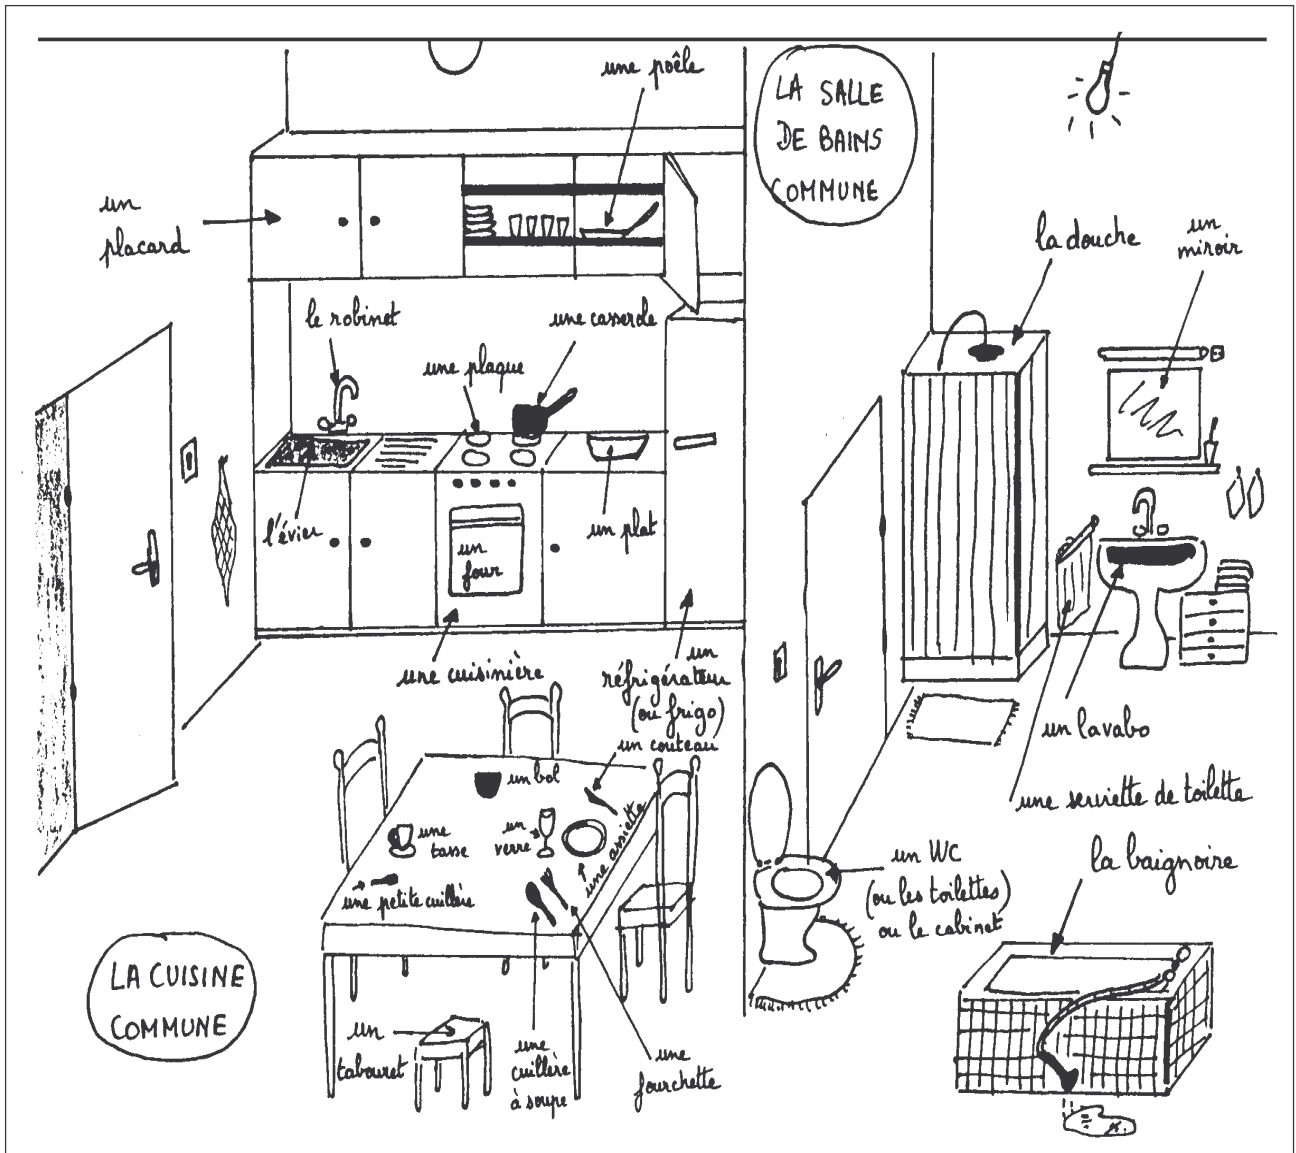 une poêle
LA SALLE
DE BAINS
COMMUNE
un
placard
la douche
un
miroir
le robinet
une casserole
une plaque
l'évier
un
four
un plat
une cuisinière
un
réfrigérateur
(ou frigo)
un couteau
un bol
une
tasse
un
verre
une assiette
une petite cuillère
un lavabo
une serviette de toilette
la baignoire
un WC
(ou les toilettes)
ou le cabinet
LA CUISINE
COMMUNE
un
tabouret
une
cuillère
à soupe
une
fourchette